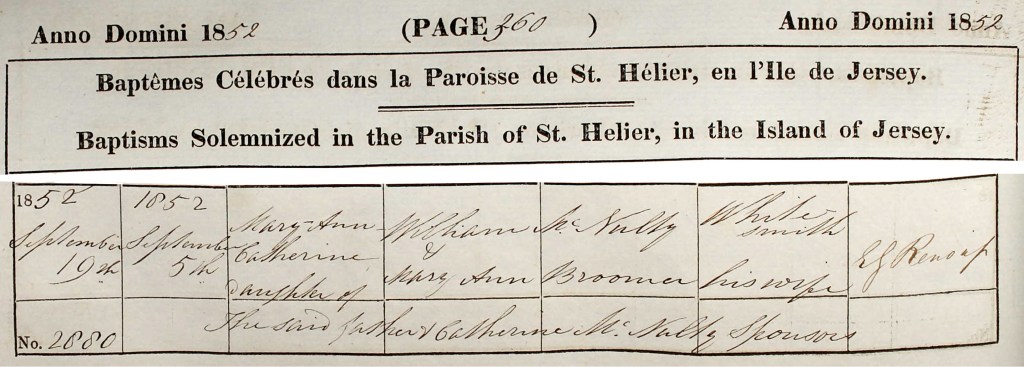 Anno Domini 1852 (PAGE 360 ) Anno Domini 1852
Baptêmes Célébrés dans la Paroisse de St. Hélier, en l'Ile de Jersey.
Baptisms Solemnized in the Parish of St. Helier, in the Island of Jersey.
1852
September
19th
No. 2880
1852
September
5th
Mary Ann
Catherine
daughter of
William
&
Mary Ann
Mc Nulty
Broomer
White-
smith
his wife
The said father & Catherine Mc Nulty Sponsors